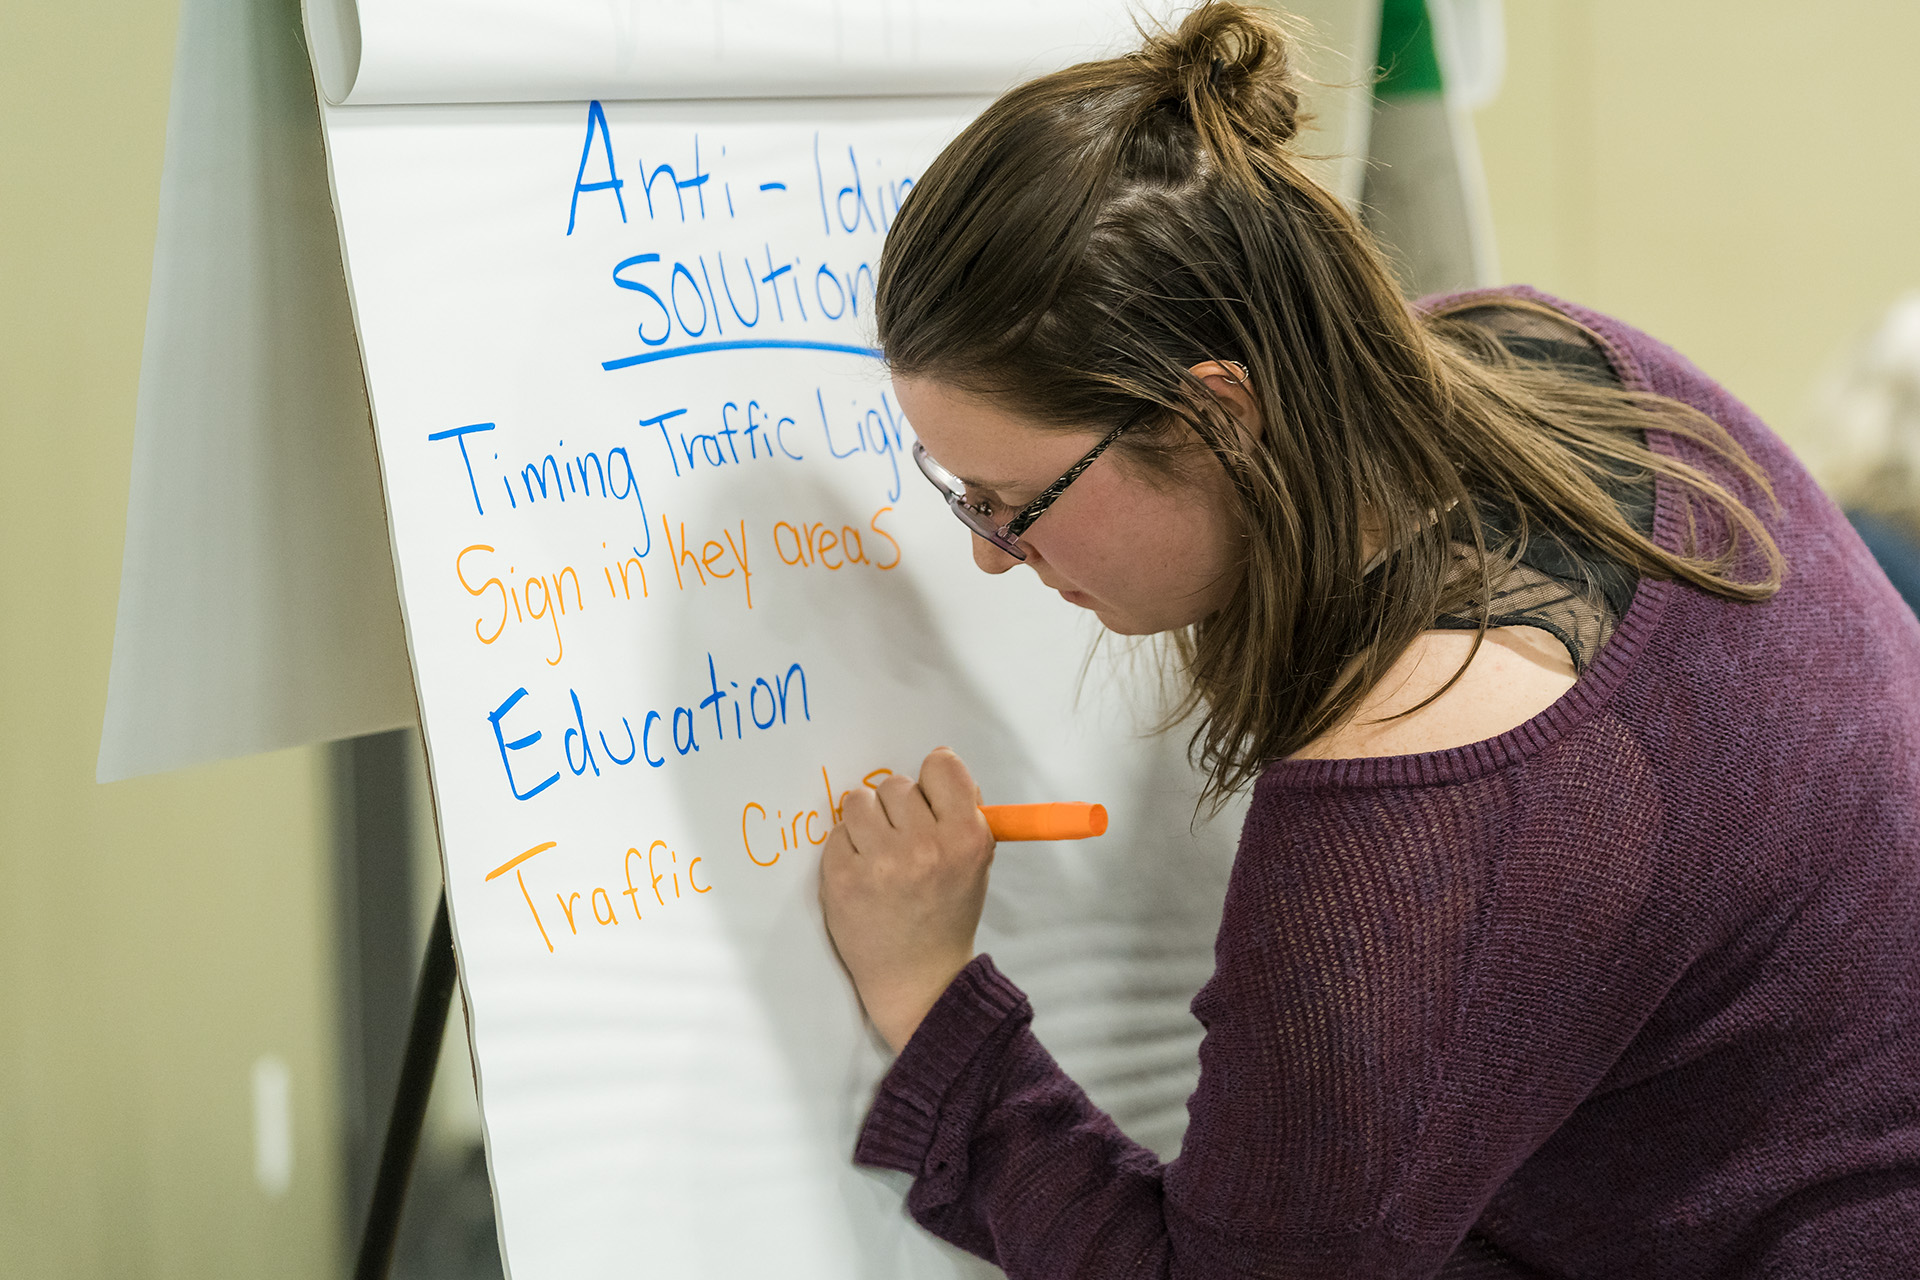 Anti-Idin
Solution
Timing Traffic Ligh
Sign in key areas
Education
Traffic Circles